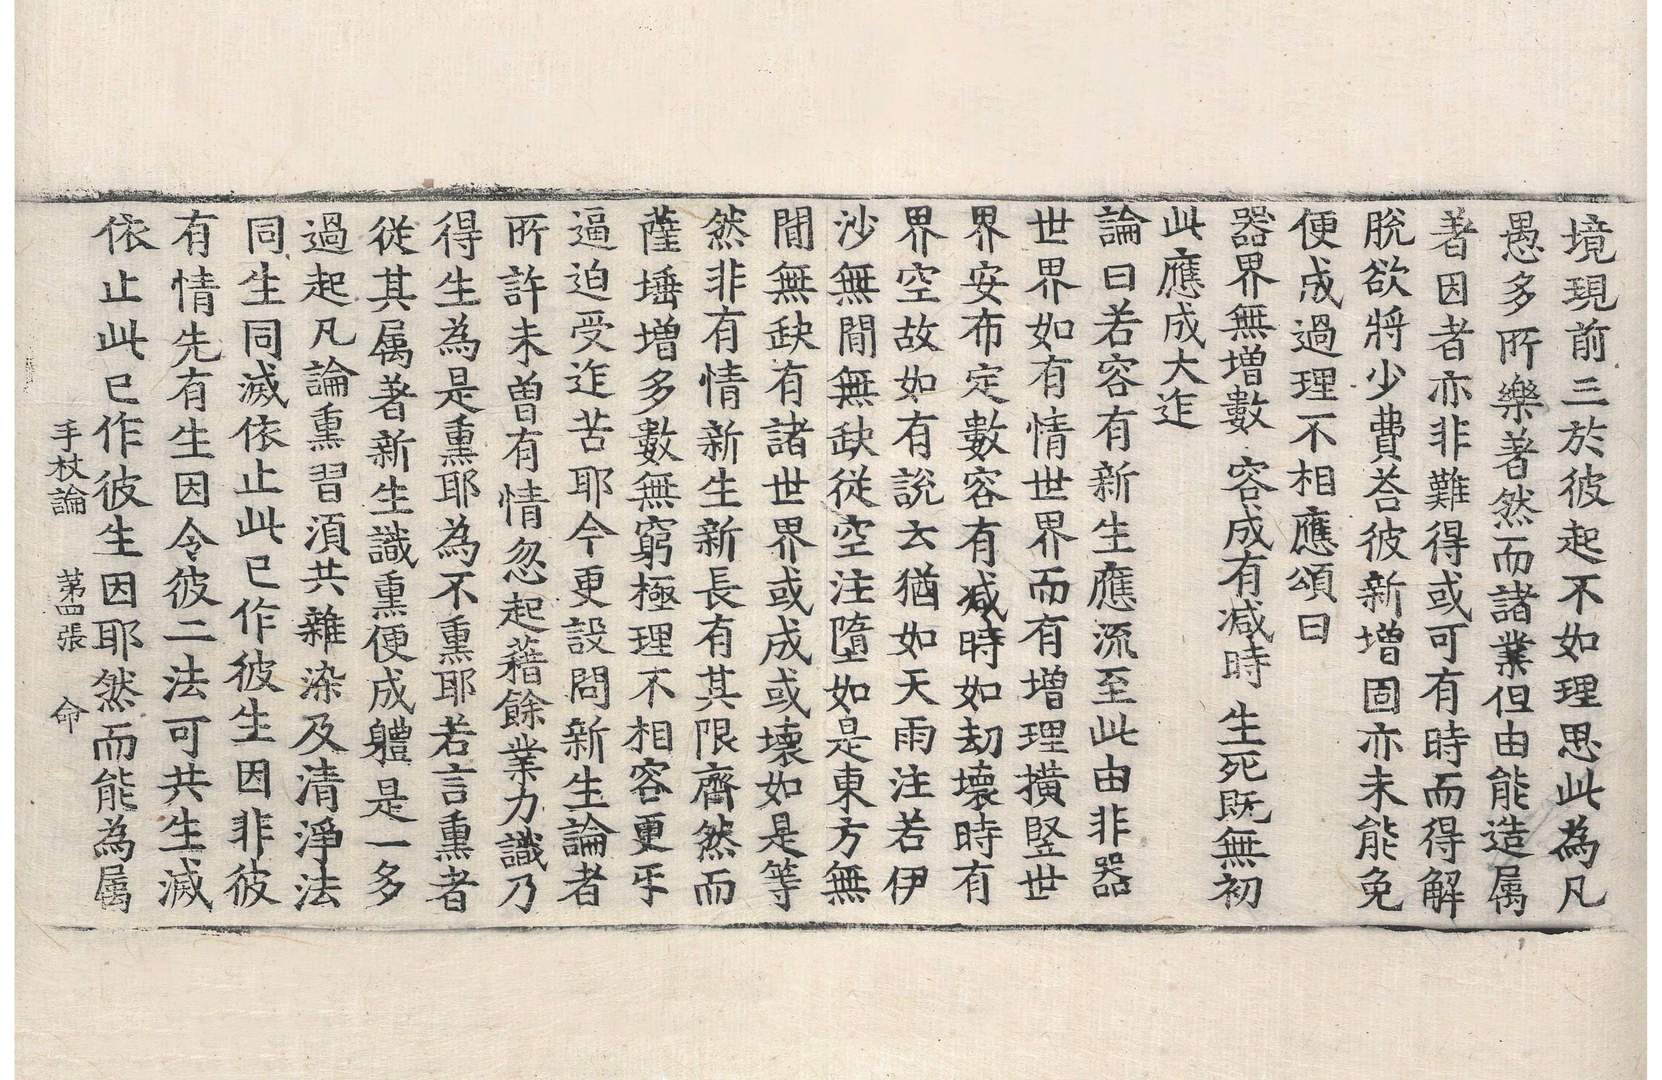 境現前三於彼起不如理思此為凡
愚多所樂著然而諸業但由能造属
著因者亦非難得或可有時而得解
脫欲將少費荅彼新增固亦未能免
便成過理不相應頌曰
器界無增數　容成有减時　生死既無初
此應成大迮
論曰若容有新生應流至此由非器
世界如有情世界而有增理擴竪世
界安布定數容有减時如劫壞時有
界空故如有說云猶如天雨注若伊
沙無間無缺從空注墮如是東方無
間無缺有諸世界或成或壞如是等
然非有情新生新長有其限齊然而
薩埵增多數無窮極理不相容更㸦
逼迫受迮苦耶今更設問新生論者
所許未曾有情忽起藉餘業力識乃
得生為是熏耶為不熏耶若言熏者
從其属著新生識熏便成軆是一多
過起凡論熏習須共雜染及清淨法
同生同滅依止此已作彼生因非彼
有情先有生因令彼二法可共生滅
依止此已作彼生因耶然而能為属
手杖論　苐四張　命